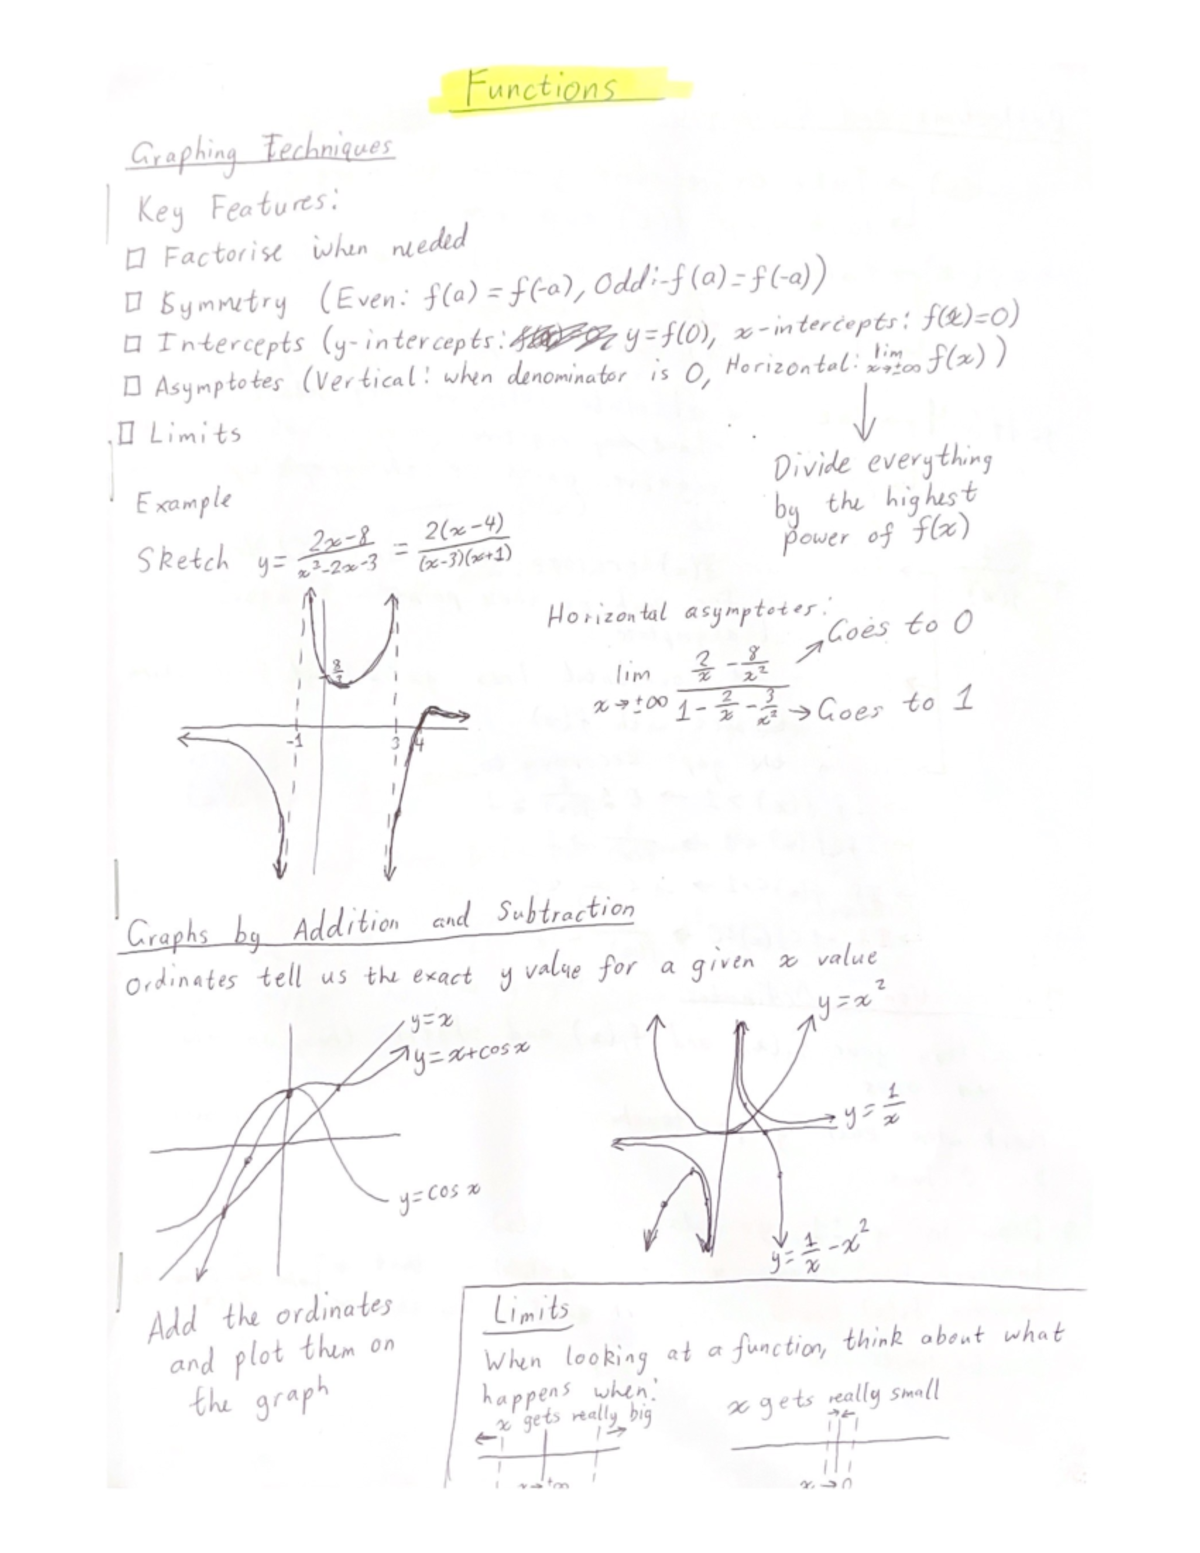 Functions
Graphing Techniques
Key Features:
□ Factorise when needed
□ Symmetry (Even: f(a) = f(-a), Odd: -f(a) = f(-a))
□ Intercepts (y-intercepts: y=f(0), x-intercepts: f(x)=0)
□ Asymptotes (Vertical: when denominator is 0, Horizontal: lim x→±∞ f(x))
□ Limits
Divide everything
by the highest
power of f(x)
Example
Sketch y = (2x-8)/(x²-2x-3) = 2(x-4)/((x-3)(x+1))
8/3
-1 3 4
Horizontal asymptotes:
lim x→±∞ (2/x - 8/x²)/(1 - 2/x - 3/x²)
→ Goes to 0
→ Goes to 1
Graphs by Addition and Subtraction
Ordinates tell us the exact y value for a given x value
y=x
y=x+cosx
y=cosx
y=x²
y=1/x
y=1/x-x²
Add the ordinates
and plot them on
the graph
Limits
When looking at a function, think about what
happens when:
x gets really big
x gets really small
x→±∞
x→0